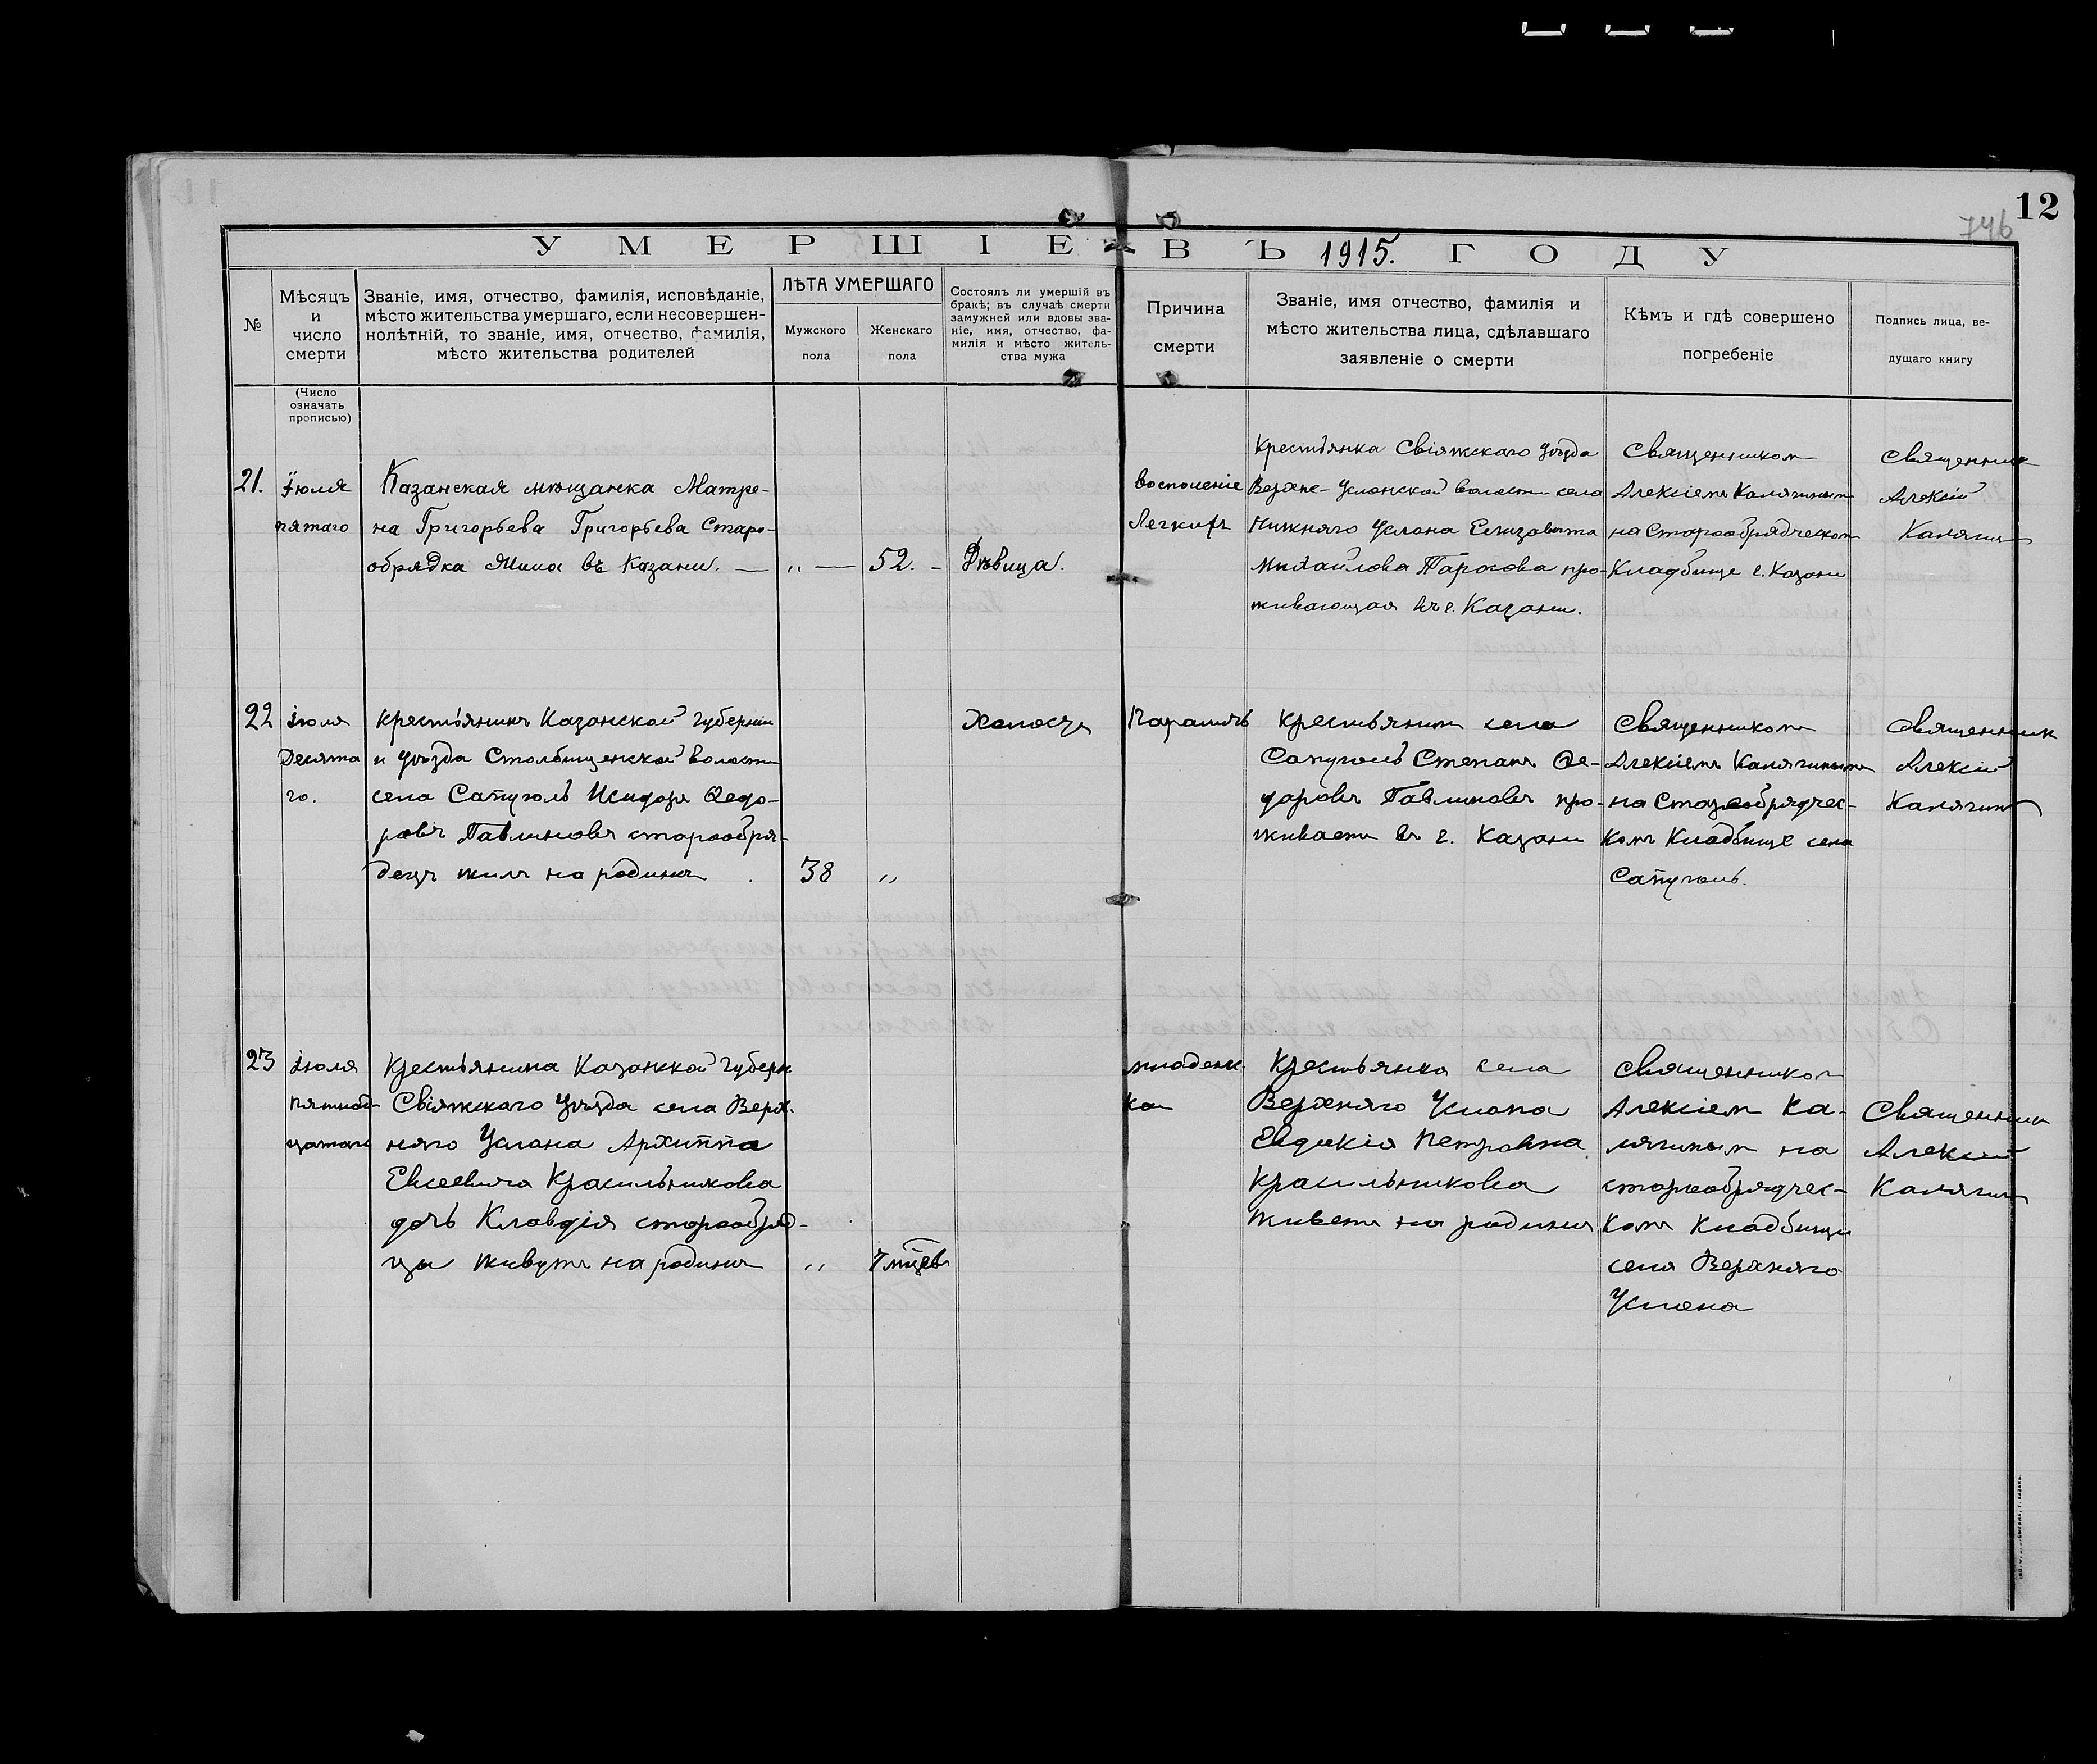 12
746
УМЕРШІЕ ВЪ 1915. ГОДУ
№
Мѣсяцъ
и
число
смерти
Званіе, имя, отчество, фамилія, исповѣданіе,
мѣсто жительства умершаго, если несовершен-
нолѣтній, то званіе, имя, отчество, фамилія,
мѣсто жительства родителей
ЛѢТА УМЕРШАГО
Мужского
пола
Женскаго
пола
Состоялъ ли умершій въ
бракѣ; въ случаѣ смерти
замужней или вдовы зва-
ніе, имя, отчество, фа-
милія и мѣсто житель-
ства мужа
Причина
смерти
Званіе, имя отчество, фамилія и
мѣсто жительства лица, сдѣлавшаго
заявленіе о смерти
Кѣмъ и гдѣ совершено
погребеніе
Подпись лица, ве-
дущаго книгу
(Число
означать
прописью)
21.
Іюля
пятаго
Казанская мѣщанка Матре-
на Григорьева Григорьева Старо-
обрядка жила въ Казани. —
„ —
52. -
Дѣвица.
Восполеніе
Легкихъ
Крестьянка Свіяжскаго уѣзда
Верхне-Услонской волости села
Нижняго Услона Елизавета
Михайлова Тарасова про-
живающая въ г. Казани.
Священником
Алексіемъ Калягиным
на Старообрядческом
Кладбище г. Казани
Священник
Алексій
Калягин
22
Іюля
Десята
го.
Крестьянинъ Казанской губерніи
и уѣзда Столбищенской волости
села Сапуголь Исидоръ Ѳедо-
ровъ Павлиновъ старообря-
децъ жилъ на родинѣ
38
„
Холостъ
Параличъ
Крестьянин села
Сапуголь Степанъ Ѳе-
доровъ Павлиновъ про-
живает въ г. Казани
Священником
Алексіемъ Калягиным
на Старообрядчес-
комъ Кладбище села
Сапуголь.
Священник
Алексій
Калягин
23
Іюля
пятнад-
цатаго
Крестьянина Казанской губерн
Свіяжскаго уѣзда села Верх-
няго Услона Архиппа
Евсеевича Красильникова
дочь Клавдія старообряд-
цы живутъ на родинѣ
„
7 мцевъ
младенс
кая
Крестьянка села
Верхняго Услона
Евдокія Петровна
Красильникова
живет на родинѣ
Священником
Алексіем Ка-
лягиным на
старообрядчес-
комъ Кладбище
села Верхняго
Услона
Священник
Алексій
Калягин